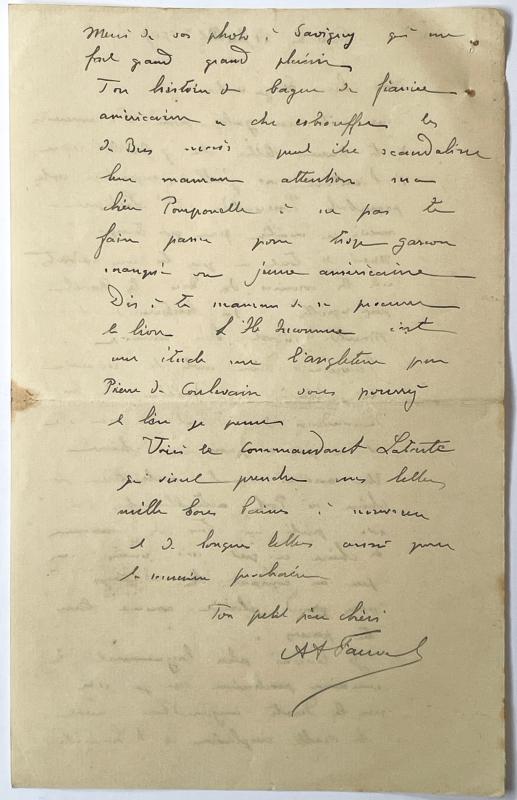 Merci de vos photo à Savigny qui me
font grand grand plaisir
Ton histoire de bague de fiancée
américaine a dû estouffer les
de Bres mais peut être scandaliser
leur maman attention ma
chère Pomponette à ne pas te
faire passer pour trop garçon
manqué ou jeune américaine
Dis à ta maman de se procurer
le livre L'Ile Inconnue c'est
une étude sur l'angleterre par
Pierre de Coulevain vous pourrez
le lire je pense
Voici le Commandant
qui vient prendre mes lettres
mille bons baisers à nouveau
et de longues lettres aussi pour
la semaine prochaine
Ton petit père chéri